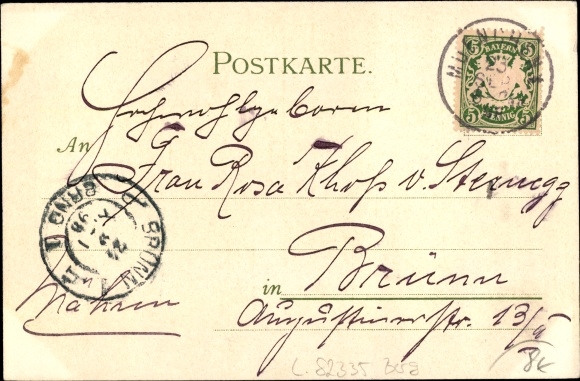 POSTKARTE.
BAYERN
5 5
PFENNIG
5 5
Hochwohlgeboren
An Frau Rosa Khoss v. Sternegg
BRÜNN
98
in Brünn
Mähren
Augustinerstr. 13/
L. 82335